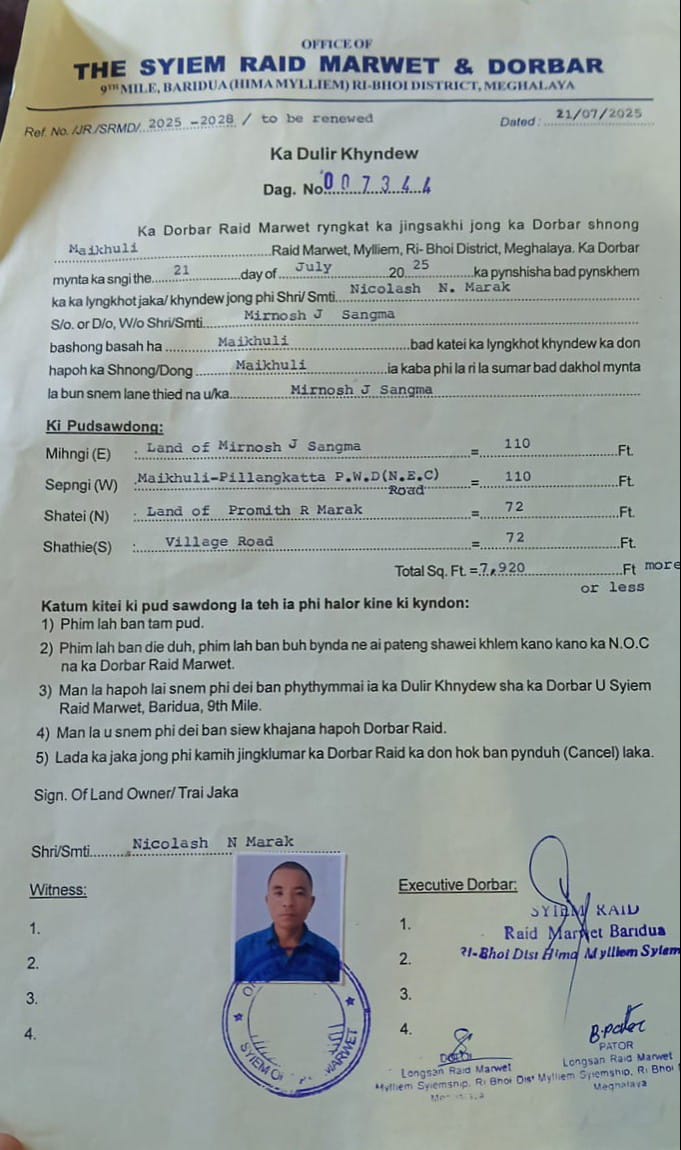 OFFICE OF
THE SYIEM RAID MARWET & DORBAR
9TH MILE, BARIDUA (HIMA MYLLIEM) RI-BHOI DISTRICT, MEGHALAYA
Ref. No. /JR /SRMD/ 2025 -2028 / to be renewed Dated : 21/07/2025
Ka Dulir Khyndew
Dag. No. 007344
Ka Dorbar Raid Marwet ryngkat ka jingsakhi jong ka Dorbar shnong
Maikhuli Raid Marwet, Mylliem, Ri- Bhoi District, Meghalaya. Ka Dorbar
mynta ka sngi the 21 day of July 20 25 ka pynshisha bad pynskhem
ka ka lyngkhot jaka/ khyndew jong phi Shri/ Smti. Nicolash N. Marak
S/o. or D/o, W/o Shri/Smti. Mirnosh J Sangma
bashong basah ha Maikhuli bad katei ka lyngkhot khyndew ka don
hapoh ka Shnong/Dong Maikhuli ia kaba phi la ri la sumar bad dakhol mynta
la bun snem lane thied na u/ka Mirnosh J Sangma
Ki Pudsawdong:
Mihngi (E) : Land of Mirnosh J Sangma = 110 Ft.
Sepngi (W) : Maikhuli-Pillangkatta P.W.D(N.E.C) = 110 Ft.
Road
Shatei (N) : Land of Promith R Marak = 72 Ft.
Shathie(S) : Village Road = 72 Ft.
Total Sq. Ft. = 7,920 Ft more
or less
Katum kitei ki pud sawdong la teh ia phi halor kine ki kyndon:
1) Phim lah ban tam pud.
2) Phim lah ban die duh, phim lah ban buh bynda ne ai pateng shawei khlem kano kano ka N.O.C
na ka Dorbar Raid Marwet.
3) Man la hapoh lai snem phi dei ban phythymmai ia ka Dulir Khnydew sha ka Dorbar U Syiem
Raid Marwet, Baridua, 9th Mile.
4) Man la u snem phi dei ban siew khajana hapoh Dorbar Raid.
5) Lada ka jaka jong phi kamih jingklumar ka Dorbar Raid ka don hok ban pynduh (Cancel) laka.
Sign. Of Land Owner/ Trai Jaka
Shri/Smti. Nicolash N Marak
Witness:
1.
2.
3.
4.
SYIEM OF MARWET
Executive Dorbar:
1.
2.
3.
4.
SYIEM RAID
Raid Marwet Baridua
Ri-Bhoi Dist Hima Mylliem Syiem
B. pator
PATOR
Longsan Raid Marwet
Mylliem Syiemship, Ri Bhoi
Meghalaya
Longsan Raid Marwet
Mylliem Syiemship, Ri Bhoi Dist